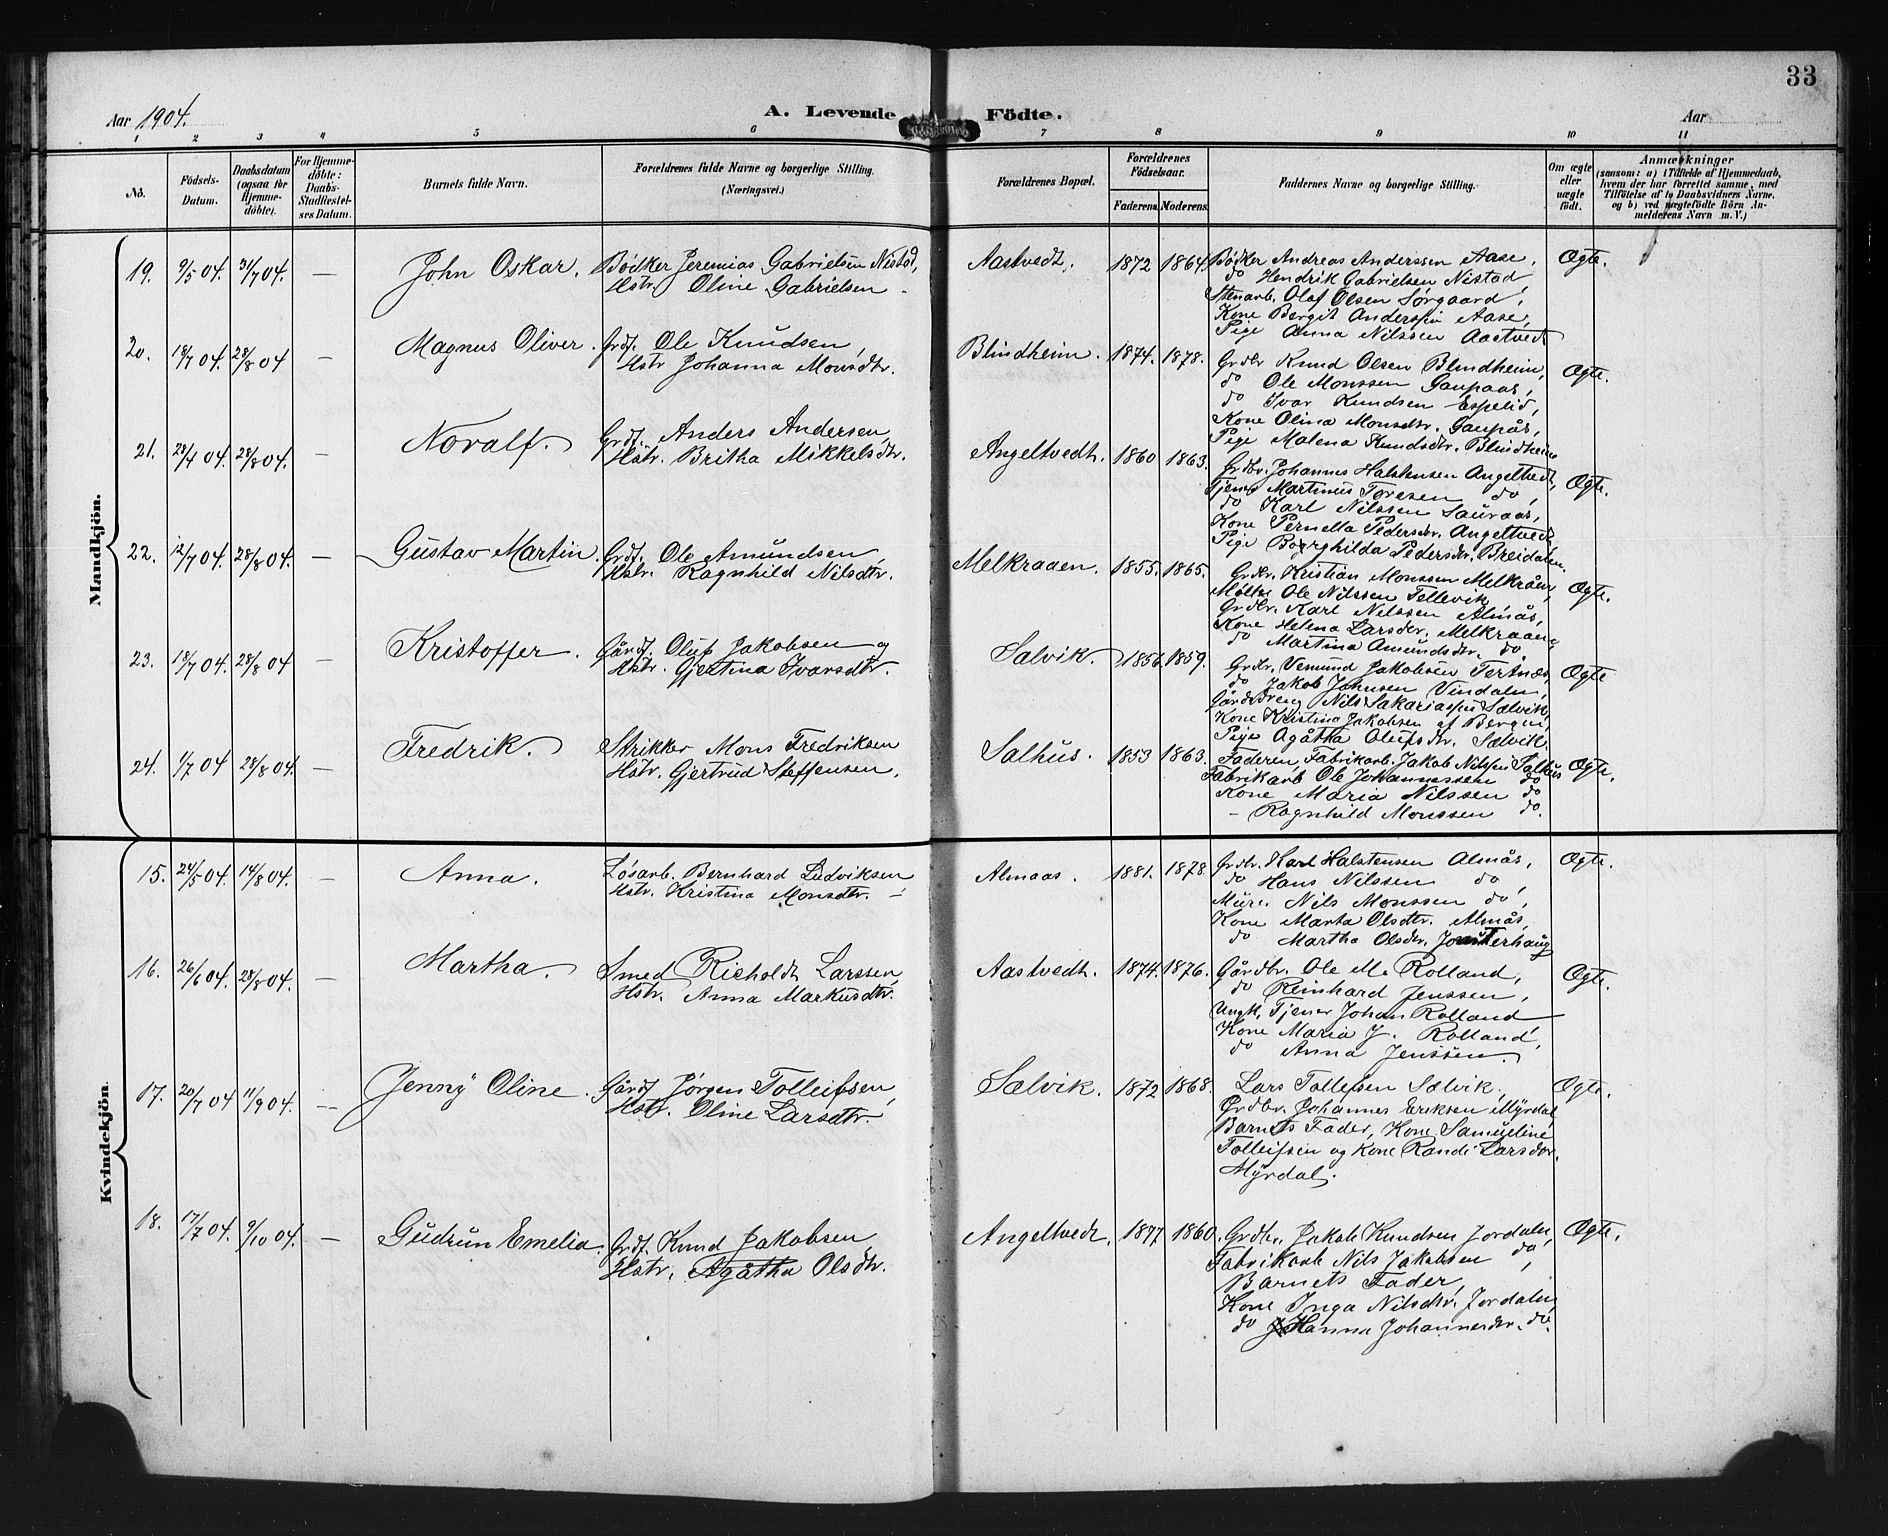 33
Aar 1904.
A. Levende Födte.
Aar
1 2 3 4 5 6 7 8 9 10 11
No.
Födsels-Datum.
Daabsdatum (ogsaa for Hjemme-döbte).
For Hjemme-döbte: Daabs-Stadfæstel-ses Datum.
Barnets fulde Navn.
Forældrenes fulde Navne og borgerlige Stilling.
(Næringsvei.)
Forældrenes Bopæl.
Forældrenes Födselsaar.
Faderens. Moderens.
Faddernes Navne og borgerlige Stilling.
Om ægte eller uægte födt.
Anmærkninger
(saasom: a) i Tilfælde af Hjemmedaab, hvem der har forrettet samme, med Tilföielse af to Daabsvidners Navne, og b) ved uægtefödte Börn An-melderens Navn m. V.)
Mandkjön.
19. 9/5 04. 31/7 04. — John Oskar. Bødker Jeremias Gabrielsen Nistad,
Hstr. Oline Gabrielsen
Aastvedt. 1872 1864. Bødker Andreas Anderssen Aase, Ægte.
do Hendrik Gabrielsen Nistad,
Stenarb. Olaf Olsen Sørgaard,
Kone Bergit Anderssen Aase,
Pige Anna Nilssen Aastvedt
20. 18/7 04. 28/8 04 — Magnus Oliver. Grdf. Ole Knudsen,
Hstr Johanna Monsdtr.
Blindheim. 1874. 1878. Grdbr Knud Olsen Blindheim, Ægte.
do Ole Monssen Gaupaas,
do Ivar Knudsen Espelid,
Kone Olina Monsdtr. Gaupås,
Pige Malena Knudsdtr. Blindheim
21. 28/4 04. 28/8 04. — Noralf. Grdf. Anders Andersen,
Hstr. Britha Mikkelsdtr.
Angeltvedt. 1860 1863. Grdbr. Johannes Halstensen Angeltvedt, Ægte.
Tjener Martinus Toresen do,
do Karl Nilssen Sauraas,
Kone Pernella Pedersdr. Angeltvedt,
Pige Borghilda Pedersdr. Breidalen.
22. 12/7 04. 28/8 04. — Gustav Martin. Grdf. Ole Amundsen,
Hstr. Ragnhild Nilsdtr.
Melkraaen. 1855. 1865. Grdbr. Kristian Monssen Melkråen, Ægte.
Ole Nilssen Tellevik,
Grdbr. Karl Nilssen Almås,
Kone Helena Larsdtr. Melkraaen,
do Martina Amundsdtr. do
23. 18/7 04. 28/8 04 — Kristoffer. Gårdf. Oluf Jakobsen og
Hstr. Gjertina Ivarsdtr.
Salvik. 1856 1859. Grdbr. Vemund Jakobsen Tertnæs, Ægte
do Jakob Johnsen Vindalen,
Gårddreng Nils Sakariassen Sælvik,
Kone Kristina Jakobsen af Bergen,
Pige Agåtha Olufsdtr. Sælvik.
24. 1/7 04 28/8 04. — Fredrik. Strikker Mons Fredriksen
Hstr. Gjertrud Steffensen.
Salhus. 1853 1863. Faderen, Fabrikarb. Jakob Nilssen Salhus Ægte.
Fabrikarb Ole Johannessen do
Kone Maria Nilssen do
— Ragnhild Monssen do.
Kvindekjön
15. 24/5 04. 14/8 04. — Anna. Løsarb. Bernhard Ludviksen,
Hstr. Kristina Monsdtr. —
Almaas. 1881. 1878 Grdbr. Karl Halstensen Almås, Ægte.
do Hans Nilssen do,
Murer Nils Monssen do,
Kone Marta Olsdtr. Almås,
do Martha Olsdtr.
16. 26/6 04. 28/8 04. Martha. Smed Richoldt Larssen,
Hstr. Anna Markusdtr.
Aastvedt. 1874. 1876. Gårdbr. Ole M. Rolland, Ægte.
do Reinhard Jenssen,
Ungk. Tjener Johan Rolland
Kone Maria J. Rolland,
do Anna Jenssen.
17. 20/7 04 11/9 04. — Jenny Oline. Gårdf. Jørgen Tolleifsen,
Hstr. Oline Larsdtr.
Sælvik. 1872 1868. Lars Tollefsen Sælvik, Ægte.
Grdbr. Johannes Eriksen Myrdal,
Barnets Fader, Kone Samueline
Tolleifsen og Kone Randi Larsdtr.
Myrdal.
18. 17/7 04. 9/10 04. — Gudrun Emelia. Grdf. Knud Jakobsen
Hstr. Agåtha Olsdtr.
Angeltvedt. 1877 1860. Grdbr. Jakob Knudsen Jordalen, Ægte.
Fabrikarb Nils Jakobsen do,
Barnets Fader,
Kone Inga Nilsdtr. Jordalen,
do Hanna Johannesdtr. do.